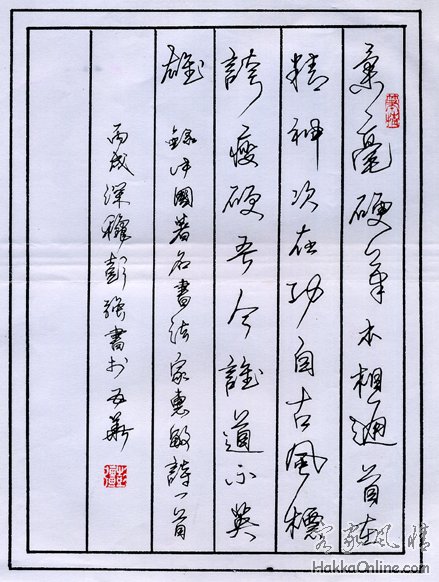 柔毫硬筆本相通首在
精神次在功自古風標
誇瘦硬吾今誰道不英
雄 錄中國著名書法家惠敏詩一首
丙戌深龝彭強書於五華
客家風情
HakkaOnline.com